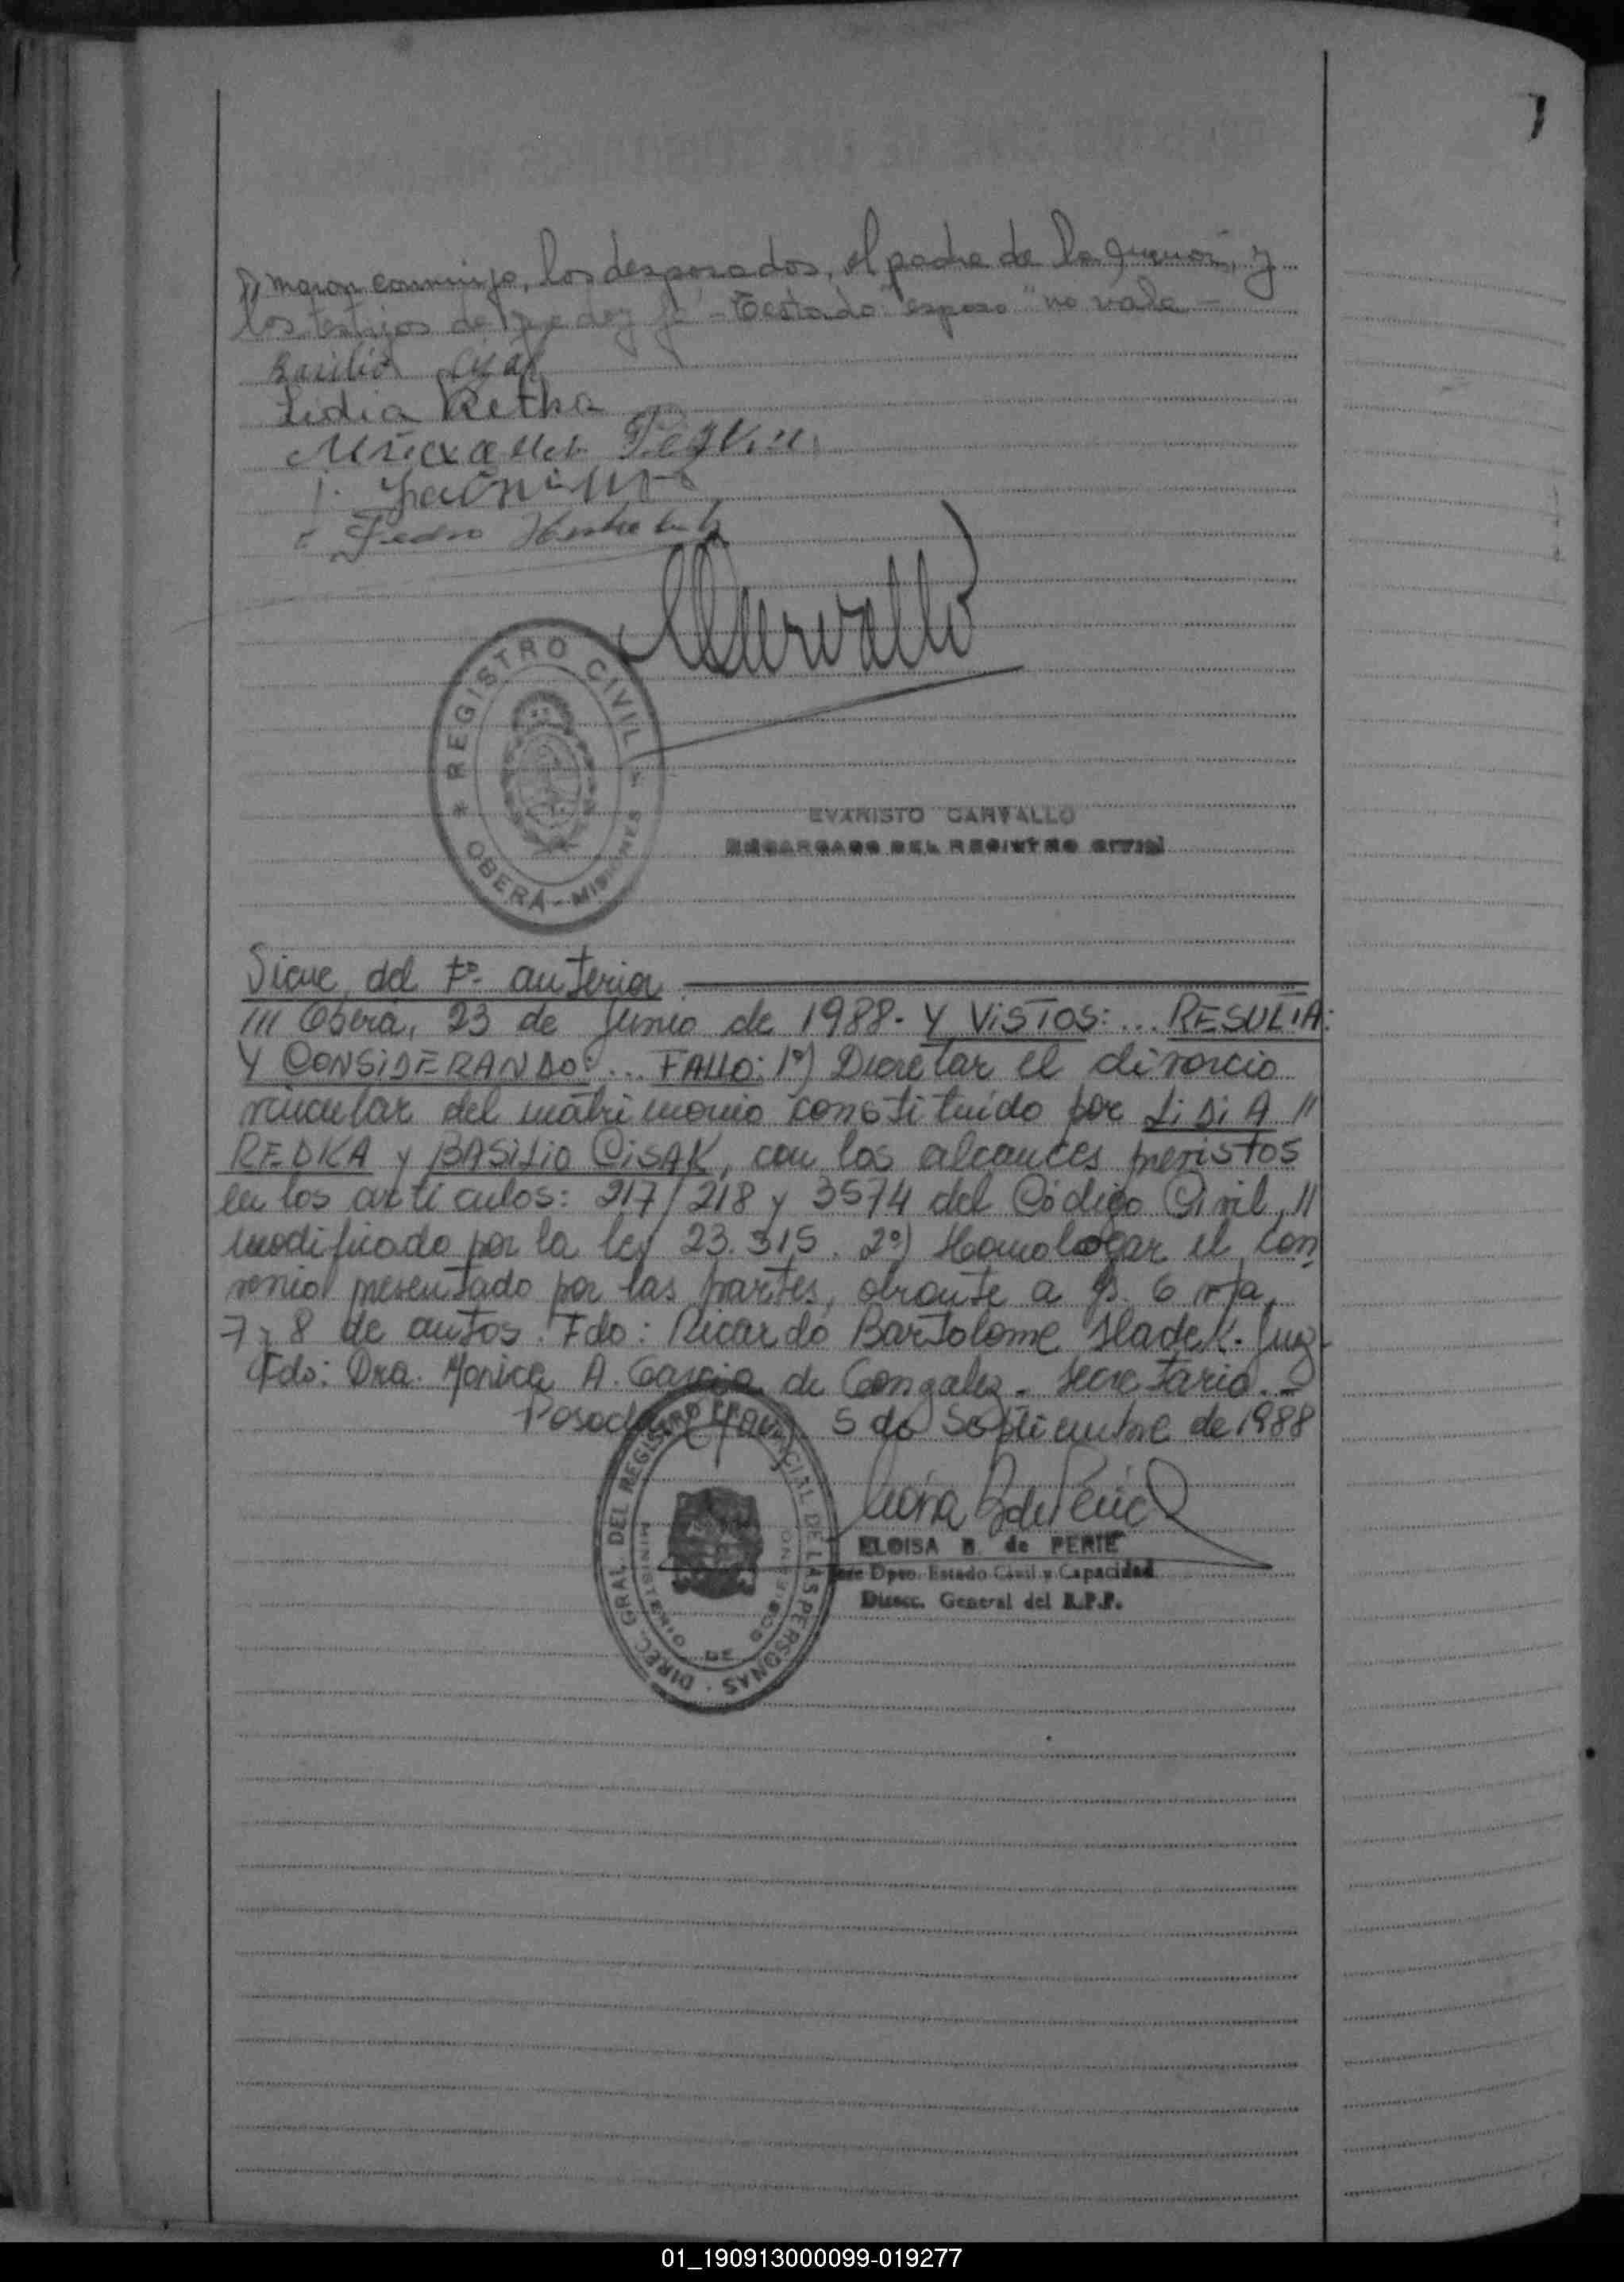 7
firmaron conmigo, los desposados, el padre de la menor, y
los testigos de que doy fé - Testado "esposo" no vale -
Basilio
Lidia Retka
Pedro
Carvallo
REGISTRO CIVIL
* OBERÁ - MISIONES
EVARISTO CARVALLO
ENCARGADO DEL REGISTRO CIVIL
Sigue del Fº anterior
/// Oberá, 23 de Junio de 1988.- Y VISTOS: ... RESULTA:
Y CONSIDERANDO: ... FALLO: 1º) Decretar el divorcio
vincular del matrimonio constituído por LIDIA //
REDKA y BASILIO CISAK, con los alcances previstos
en los artículos: 217/218 y 3574 del Código Civil, //
modificado por la ley 23.515. 2º) Homologar el con
venio presentado por las partes, obrante a fs. 6 vta,
7 y 8 de autos. Fdo: Ricardo Bartolome Sladek. Juez
Fdo: Dra. Monica A. Garcia de Gonzalez. Secretaria.-
Posadas 5 de Septiembre de 1988
DIREC. GRAL. DEL REGISTRO PROVINCIAL DE LAS PERSONAS
MINISTERIO DE GOBIERNO
ELOISA B. de PERIE
Jefe Dpto. Estado Civil y Capacidad
Direcc. General del R.P.P.
01_190913000099-019277